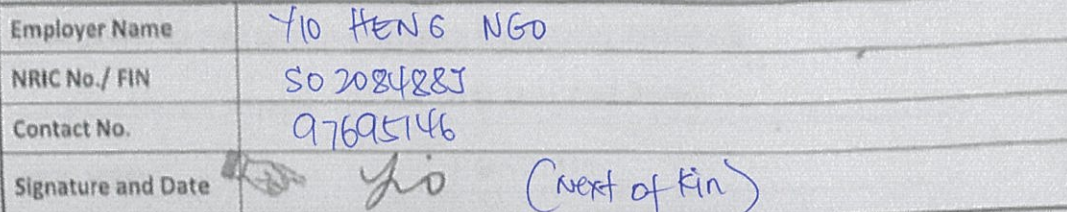 Employer Name YIO HENG NGO
NRIC No./ FIN S0208488J
Contact No. 97695146
Signature and Date Yio (Next of Kin)